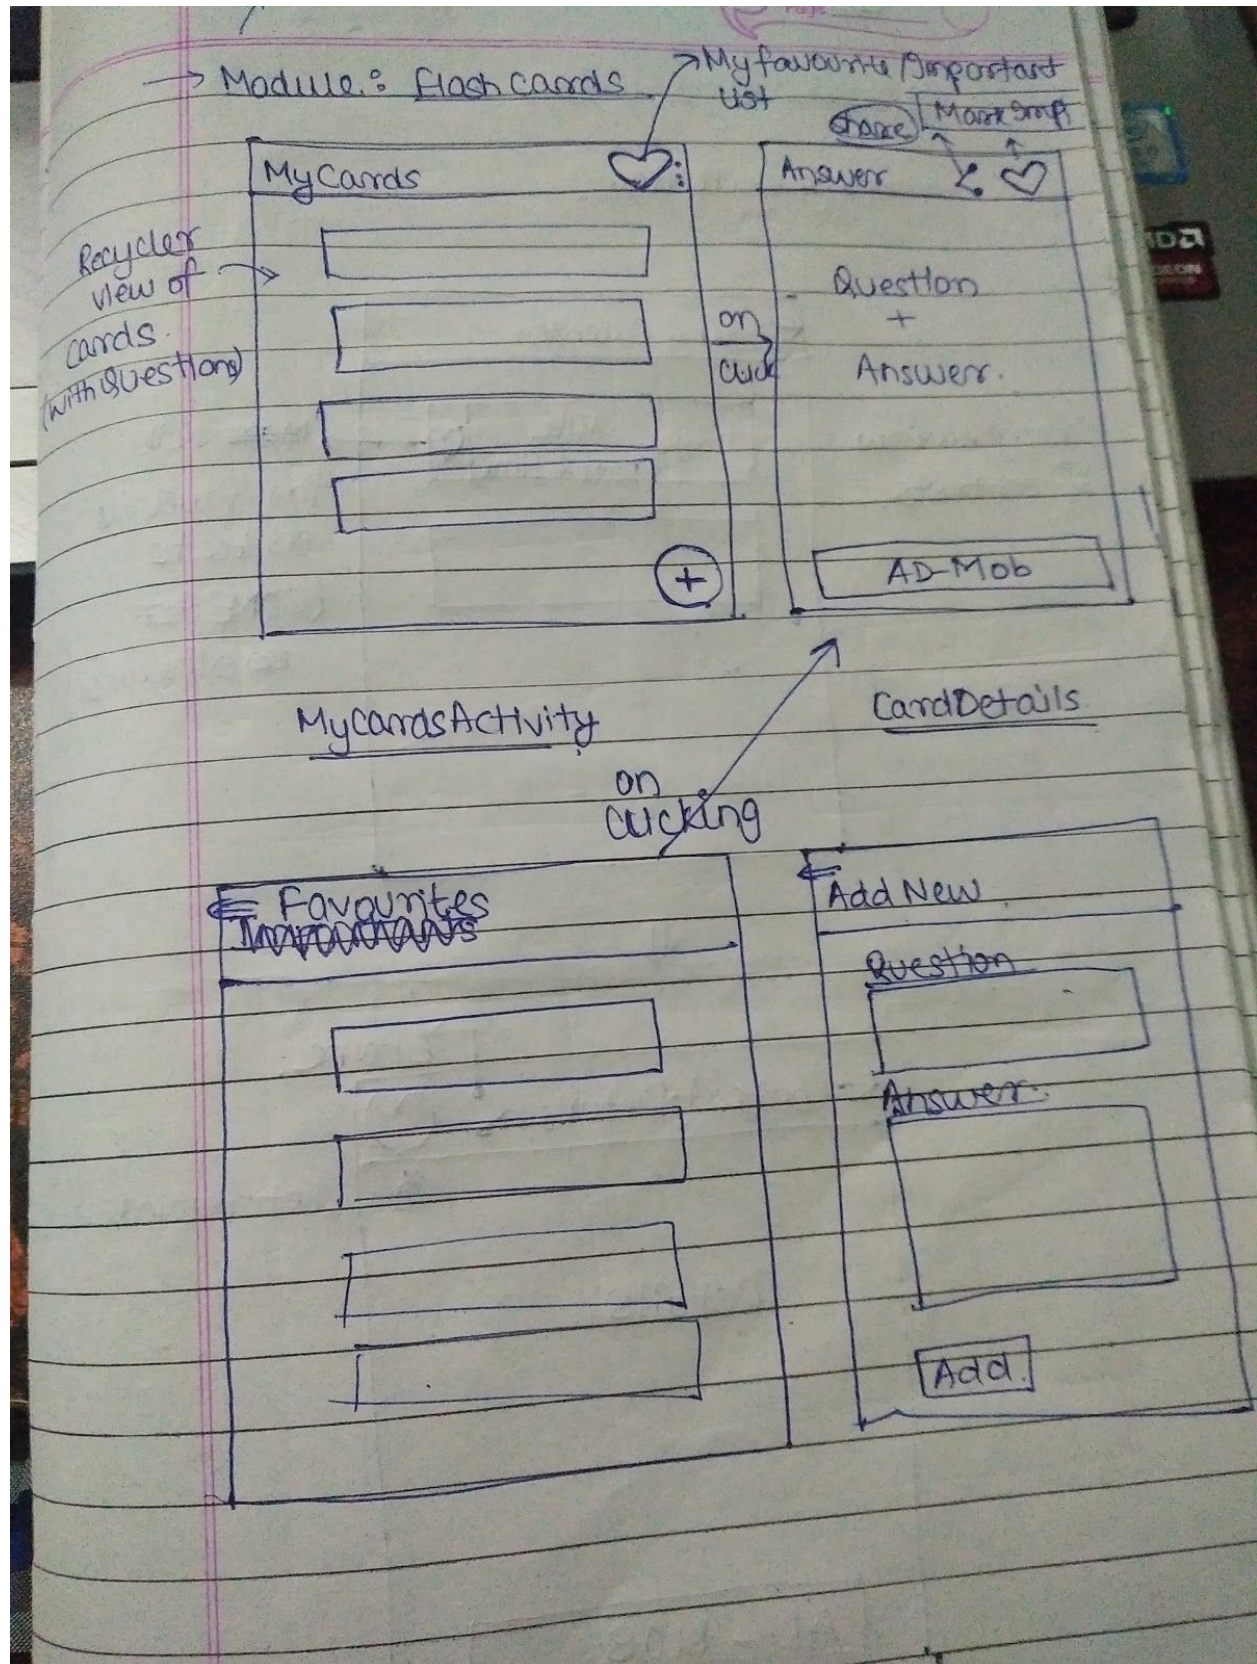 Page
→ Module: Flash Cards
My favourite/Important
List
Share
Mark Imp
MyCards
Answer
Recycler
view of
cards.
(with Questions)
on
click
Question
+
Answer.
+
AD-Mob
MyCardsActivity
CardDetails
on
clicking
Favourites
Importants
Add New
Question
Answer:
Add